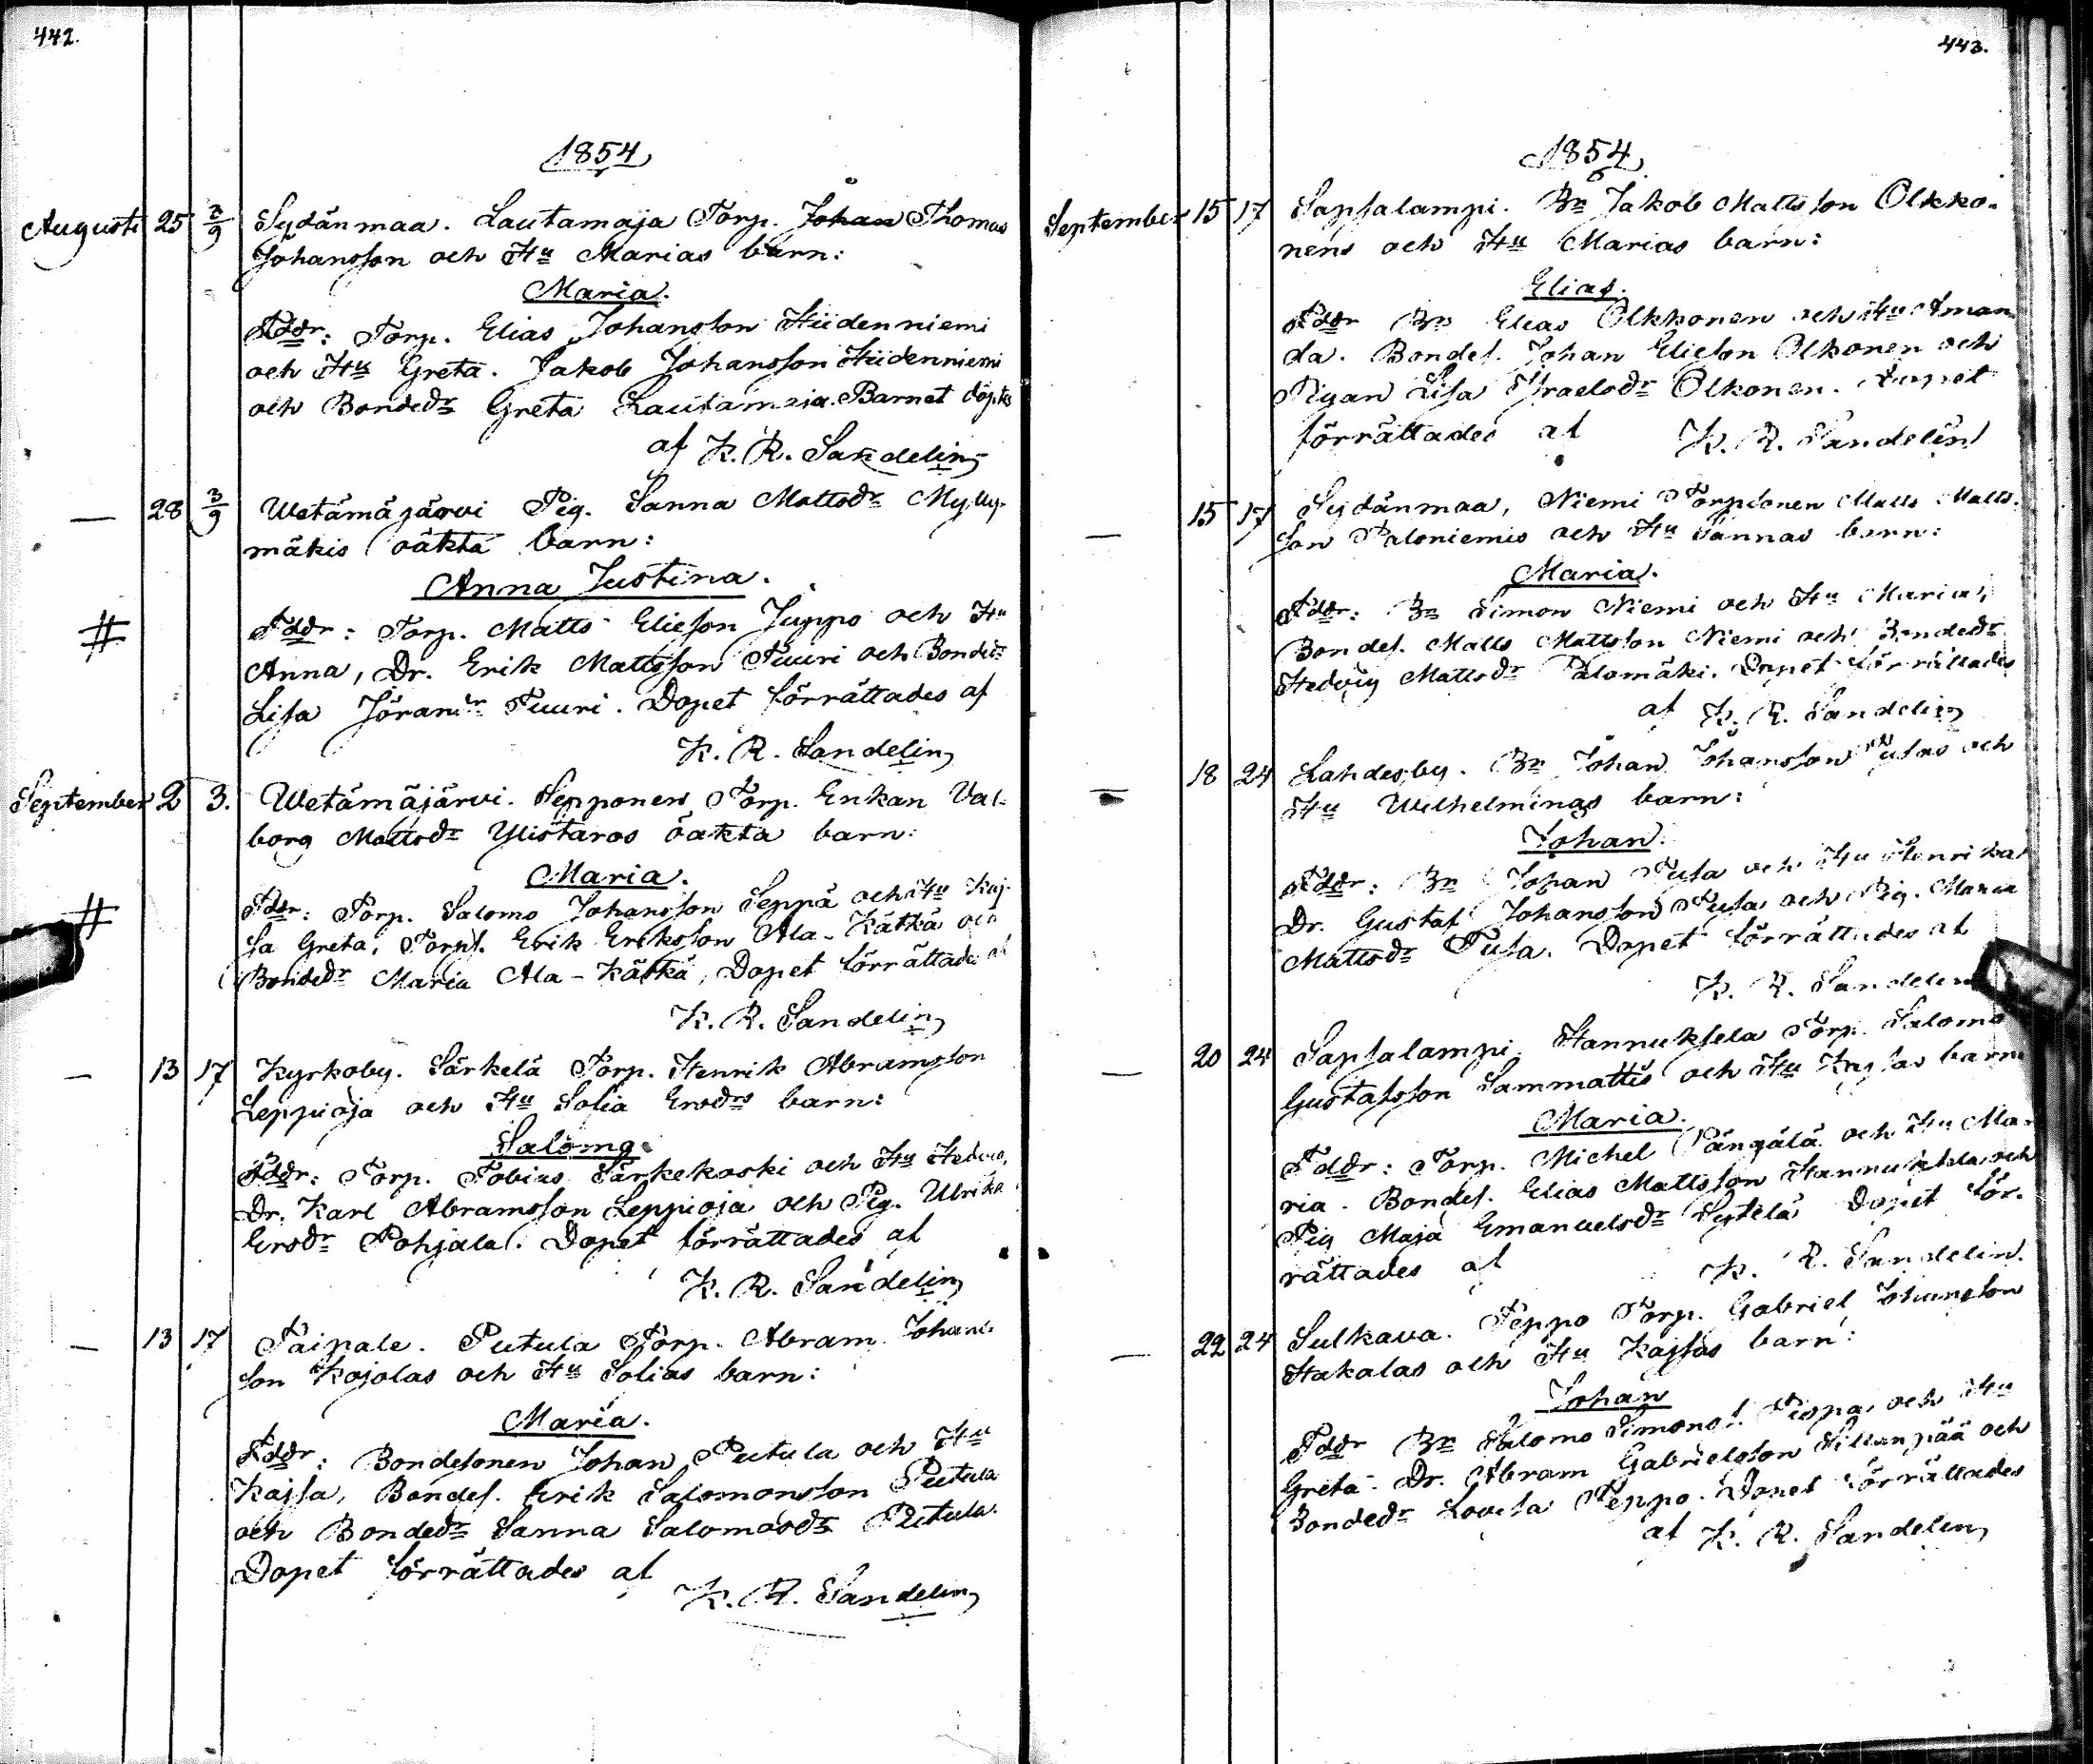 442.
1854
Augusti 25 3/9 Sydänmaa. Lautamaja Torp. Johan Thomas
Johansson och Hu Marias barn:
Maria.
Fddr: Torp. Elias Johansson Hiidenniemi
och Hu Greta. Jakob Johansson Hiidenniemi
och Bondedr Greta Lautamaja. Barnet döptes
af K. R. Sandelin
— 28 3/9 Wetämäjärvi Pig. Sanna Mattsdr Mylly-
mäkis oäkta barn:
Anna Justina.
# Fddr: Torp. Matts Elieson Juppo och Hu
Anna, Dr. Erik Mattsson Tuuri och Bondedr
Lisa Jörandr Tuuri. Dopet förrättades af
K. R. Sandelin
September 2 3. Wetämäjärvi. Sepponen Torp. Enkan Val-
borg Mattsdr Ylistaros oäkta barn:
Maria.
# Fddr: Torp. Salomo Johansson Seppä och Hu Kaj-
sa Greta, Torps. Erik Eriksson Ala-Kätkä och
Bondedr Maria Ala-Kätkä, Dopet förrättades af
K. R. Sandelin
— 13 17 Kyrkoby. Särkelä Torp. Henrik Abramsson
Leppioja och Hu Sofia Ersdrs barn:
Salomo.
Fddr: Torp. Tobias Särkekoski och Hu Hedvig,
Dr. Karl Abramsson Leppioja och Pig. Ulrika
Ersdr Pohjala. Dopet förrättades af
K. R. Sandelin
— 13 17 Taipale. Putula Torp. Abram Johans-
son Kojolas och Hu Sofias barn:
Maria.
Fddr: Bondesonen Johan Putula och Hu
Kajsa, Bondes. Erik Salomonsson Putula
och Bondedr Sanna Salomosdr Putula.
Dopet förrättades af
K. R. Sandelin
443.
1854
September 15 17 Sapsalampi. Bn Jakob Mattsson Olkko-
nens och Hu Marias barn:
Elias.
Fddr Bn Elias Olkkonen och Hu Aman-
da. Bondes. Johan Elieson Olkonen och
Pigan Lisa Israelsdr Olkonen. Dopet
förrättades af K. R. Sandelin
— 15 17 Sydänmaa, Niemi Torpsonen Matts Matts-
son Paloniemis och Hu Sannas barn:
Maria.
Fddr: Bn Simon Niemi och Hu Maria,
Bondes. Matts Mattsson Niemi och Bondedr
Hedvig Mattsdr Palomäki. Dopet förrättades
af K. R. Sandelin
— 18 24 Lahdesby. Bn Johan Johansson Tusas och
Hu Wilhelminas barn:
Johan.
Fddr: Bn Johan Tusa och Hu Henrika
Dr. Gustaf Johansson Tusa och Pig. Maria
Mattsdr Tusa. Dopet förrättades af
K. R. Sandelin
— 20 24 Sapsalampi. Hannuksela Torp. Salomo
Gustafsson Sammattis och Hu Kajsas barn
Maria.
Fddr: Torp. Michel Pängälä och Hu Ma-
ria. Bondes. Elias Mattsson Hannuksela och
Pig Maja Emanuelsdr Sytelä Dopet för-
rättades af K. R. Sandelin.
— 22 24 Sulkava. Teppo Torp. Gabriel Johansson
Hakalas och Hu Kajsas barn:
Johan
Fddr Bn Salomo Simons. och Hu
Greta. Dr. Abram Gabrielsson Sillanpää och
Bondedr Lovisa Teppo. Dopet förrättades
af K. R. Sandelin